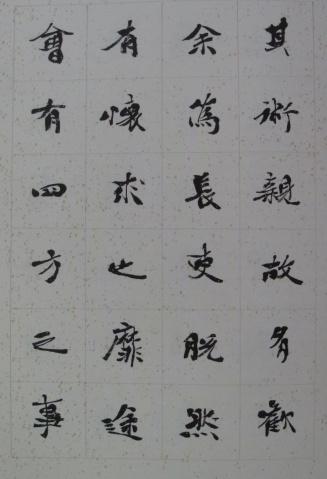 其術親故多勸
余為長吏脫然
有懷求也靡途
會有四方之事